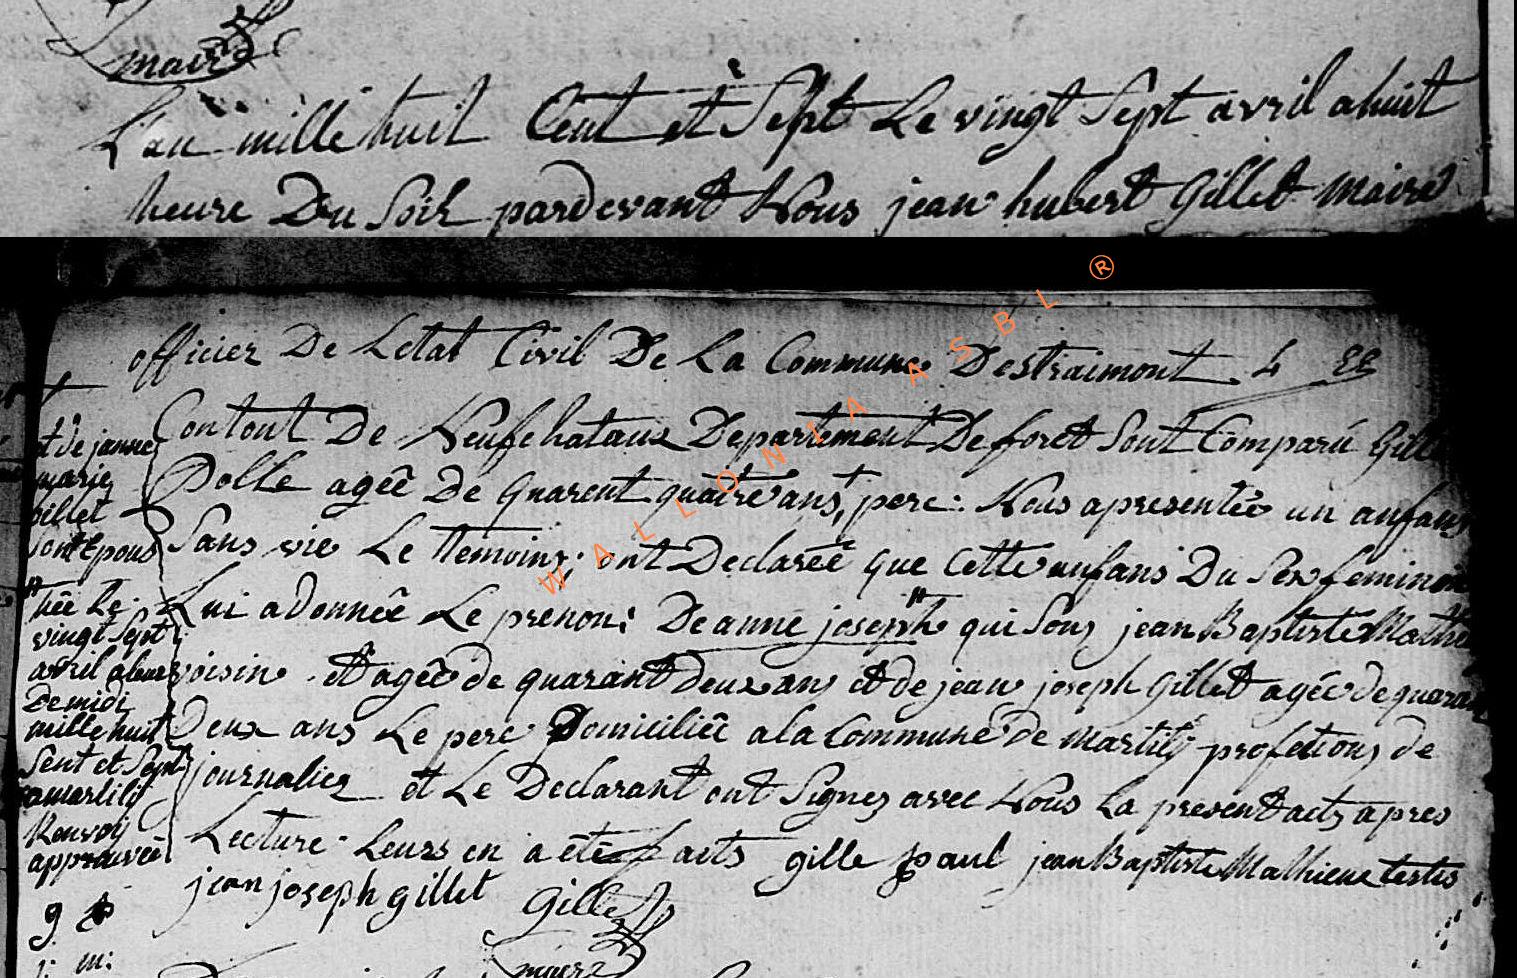 maire
L'an mille huit Cent et Sept Le vingt Sept avril a huit
heure Du Soir pardevant Nous jean hubert Gillet maire
officier De Letat Civil De La Commune Destraimont
Contont De Neufchataux Departement De foret Sont Comparü Gille
Polle agéê De Quarent quatre ans, pere: Nous apresentée un anfans
Sans vie Le temoins ont Declareé que Cette anfans Du Sex feminin
Lui adonneê Le prenom: De anne joseph qui Sons jean Baptiste Mathieu
voisin et ageê de quarant deux ans et de jean joseph Gillet ageé de quarant
Deux ans Le pere Domicilieê a la Commune de martilij profetions de
journalier et Le Declarant ont Signez avec Nous La present acts apres
Lecture Leurs en a êtê faits gille paul jean Baptiste Mathieux testis
jean joseph gillet Gillet
maire
et de janne
marie
gillet
Sont Epous
neé Le
vingt Sept
avril a leur
De midi
mille huit
Sent et Sept
a martilij
Renvoij
approuveê
g p
j: m:
WALLONIA ASBL ®